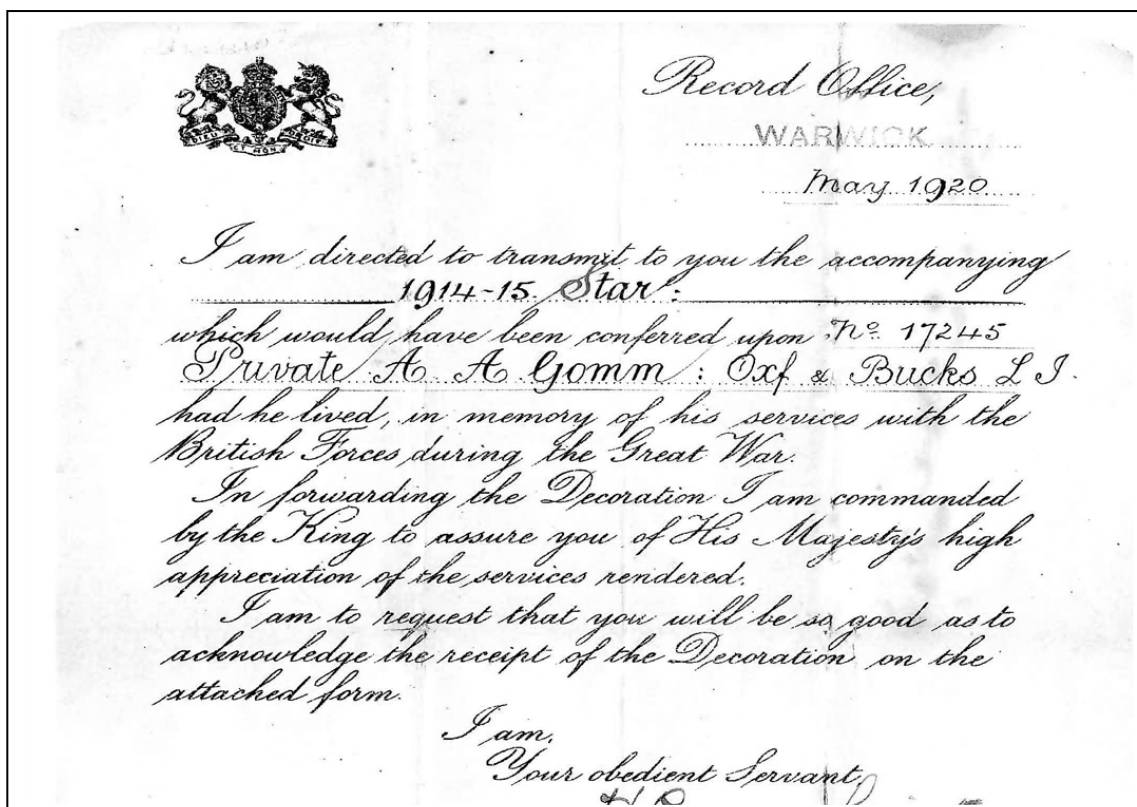 DIEU ET MON DROIT
Record Office,
WARWICK
May 1920
I am directed to transmit to you the accompanying
1914-15. Star:
which would have been conferred upon Nº 17245
Private A A Gomm : Oxf & Bucks L I.
had he lived, in memory of his services with the
British Forces during the Great War.
In forwarding the Decoration I am commanded
by the King to assure you of His Majesty's high
appreciation of the services rendered.
I am to request that you will be so good as to
acknowledge the receipt of the Decoration on the
attached form.
I am,
Your obedient Servant,